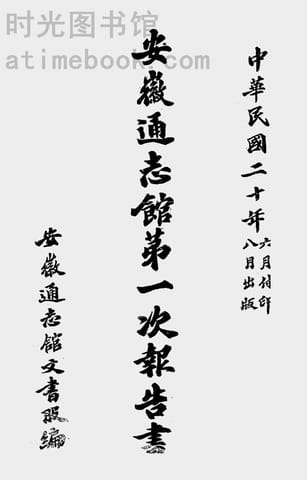 时光图书馆
atimebook.com
中華民國二十年六月付印
八月出版
安徽通志館第一次報告書
安徽通志館文書股編